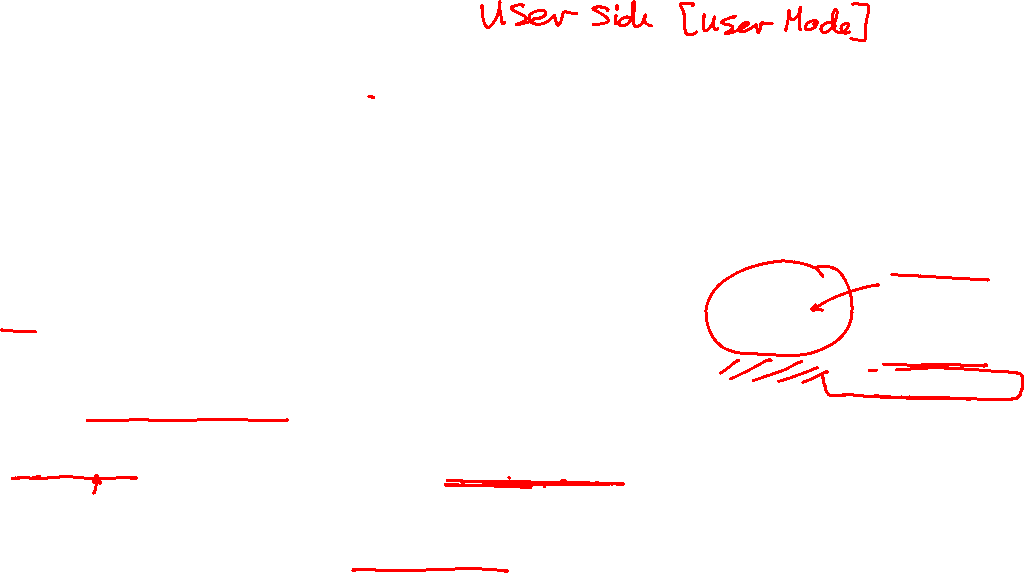 User Side [User Mode]